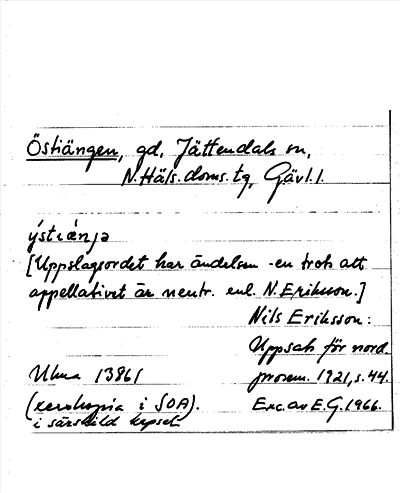 Östiängen, gd, Jättendals sn,
N. Häls. doms. tg, Gävl. l.
ýstiæ̀nȷə
[Uppslagsordet har ändelsen -en trots att
appellativet är neutr. enl. N. Eriksson.]
Nils Eriksson:
Uppsats för nord.
prosem. 1921, s. 44.
Ulma 13861
(xerokopia i SOA).
i särskild kapsel
Exc. av E.G. 1966.